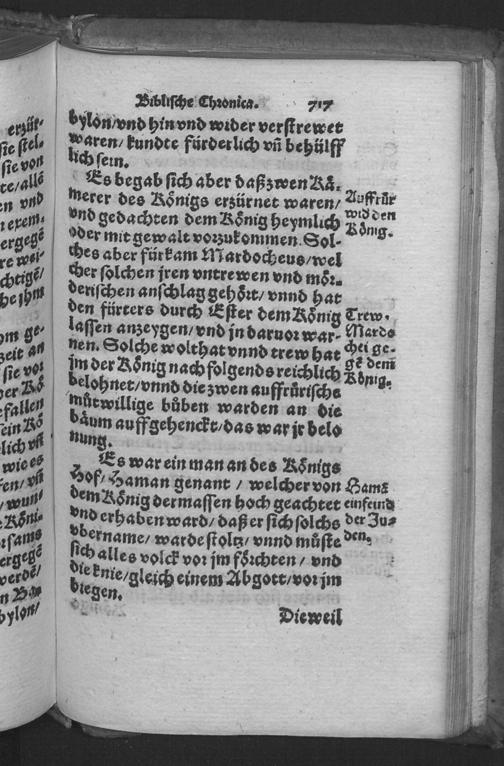 Biblische Chronica. 717
bylon/vnd hin vnd wider verstrewet
waren/kundte fürderlich vñ behülff
lich sein.
Es begab sich aber daß zwen Kä-
merer des Königs erzürnet waren/
vnd gedachten dem König heymlich
oder mit gewalt vorzukommen. Sol-
ches aber fürkam Mardocheus/wel
cher solchen jren vntrewen vnd mör-
derischen anschlag gehört/vnnd hat
den fürters durch Ester dem König
lassen anzeygen/vnd jn daruor war-
nen. Solche wolthat vnnd trew hat
jm der König nachfolgends reichlich
belohnet/vnnd die zwen auffrürische
mütwillige büben warden an die
bäum auffgehenckt/das war jr belo
nung.
Es war ein man an des Königs
Hof/Haman genant/welcher von
dem König dermassen hoch geachtet
vnd erhaben ward/daß er sich solchs
vbername/warde stoltz/vnnd müste
sich alles volck vor jm förchten/vnd
die knie/gleich einem Abgott/vor jm
biegen.
Dieweil
Auffrür
wid den
König.
Trew
Mardo
chei ge-
gẽ dem
König.
Hamã
einfeind
der Ju-
den.
erzür-
sie stel-
sie von
te/allẽ
en vnd
n exem-
ergegẽ
re wei-
chtigẽ/
he jhm
om ge-
zeit an
sie vor
der Kö
efallen
ein Kö
lich vñ
wie es
fen/vñ
/wun-
Köni-
rsams
ergegẽ
werdẽ/
n Ba-
bylon/